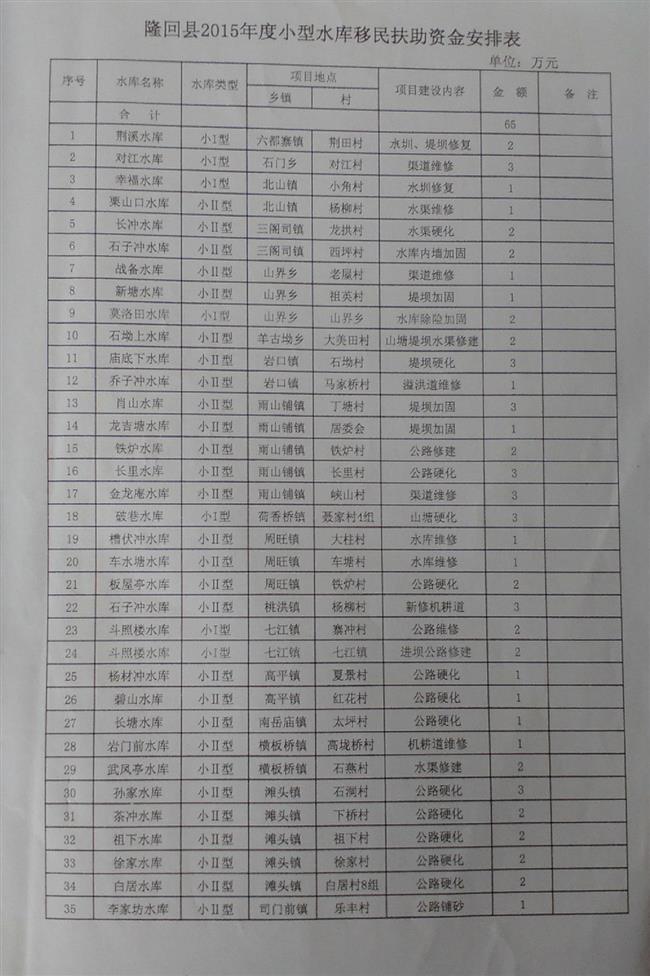 隆回县2015年度小型水库移民扶助资金安排表
单位：万元
序号 水库名称 水库类型 项目地点 项目建设内容 金 额 备 注
乡镇 村
合 计 65
1 荆溪水库 小Ⅰ型 六都寨镇 荆田村 水圳、堤坝修复 2
2 对江水库 小Ⅰ型 石门乡 对江村 渠道维修 3
3 幸福水库 小Ⅰ型 北山镇 小角村 水圳修复 1
4 栗山口水库 小Ⅱ型 北山镇 杨柳村 水渠维修 1
5 长冲水库 小Ⅱ型 三阁司镇 龙拱村 水渠硬化 2
6 石子冲水库 小Ⅱ型 三阁司镇 西坪村 水库内墙加固 2
7 战备水库 小Ⅱ型 山界乡 老屋村 渠道维修 1
8 新塘水库 小Ⅱ型 山界乡 祖英村 堤坝加固 1
9 莫洛田水库 小Ⅰ型 山界乡 山界乡 水库除险加固 2
10 石坳上水库 小Ⅱ型 羊古坳乡 大美田村 山塘堤坝水渠修建 2
11 庙底下水库 小Ⅱ型 岩口镇 石坳村 堤坝硬化 3
12 乔子冲水库 小Ⅱ型 岩口镇 马家桥村 溢洪道维修 1
13 肖山水库 小Ⅱ型 雨山铺镇 丁塘村 堤坝加固 3
14 龙吉塘水库 小Ⅱ型 雨山铺镇 居委会 堤坝加固 1
15 铁炉水库 小Ⅱ型 雨山铺镇 铁炉村 公路修建 2
16 长里水库 小Ⅱ型 雨山铺镇 长里村 公路硬化 3
17 金龙庵水库 小Ⅱ型 雨山铺镇 峡山村 渠道维修 3
18 破巷水库 小Ⅰ型 荷香桥镇 聂家村4组 山塘硬化 3
19 槽伏冲水库 小Ⅱ型 周旺镇 大柱村 水库维修 1
20 车水塘水库 小Ⅱ型 周旺镇 车塘村 水库维修 1
21 板屋亭水库 小Ⅱ型 周旺镇 铁炉村 公路硬化 2
22 石子冲水库 小Ⅱ型 桃洪镇 杨柳村 新修机耕道 3
23 斗照楼水库 小Ⅰ型 七江镇 寨冲村 公路维修 2
24 斗照楼水库 小Ⅰ型 七江镇 七江镇 进坝公路修建 2
25 杨材冲水库 小Ⅱ型 高平镇 夏景村 公路硬化 1
26 碧山水库 小Ⅱ型 高平镇 红花村 公路硬化 1
27 长塘水库 小Ⅱ型 南岳庙镇 太坪村 公路硬化 1
28 岩门前水库 小Ⅱ型 横板桥镇 高垅桥村 机耕道维修 1
29 武凤亭水库 小Ⅱ型 横板桥镇 石燕村 水渠修建 2
30 孙家水库 小Ⅱ型 滩头镇 石洞村 公路硬化 3
31 茶冲水库 小Ⅱ型 滩头镇 下桥村 公路硬化 2
32 祖下水库 小Ⅱ型 滩头镇 祖下村 公路硬化 2
33 徐家水库 小Ⅱ型 滩头镇 徐家村 公路硬化 2
34 白居水库 小Ⅱ型 滩头镇 白居村8组 公路硬化 2
35 李家坊水库 小Ⅱ型 司门前镇 乐丰村 公路铺砂 1